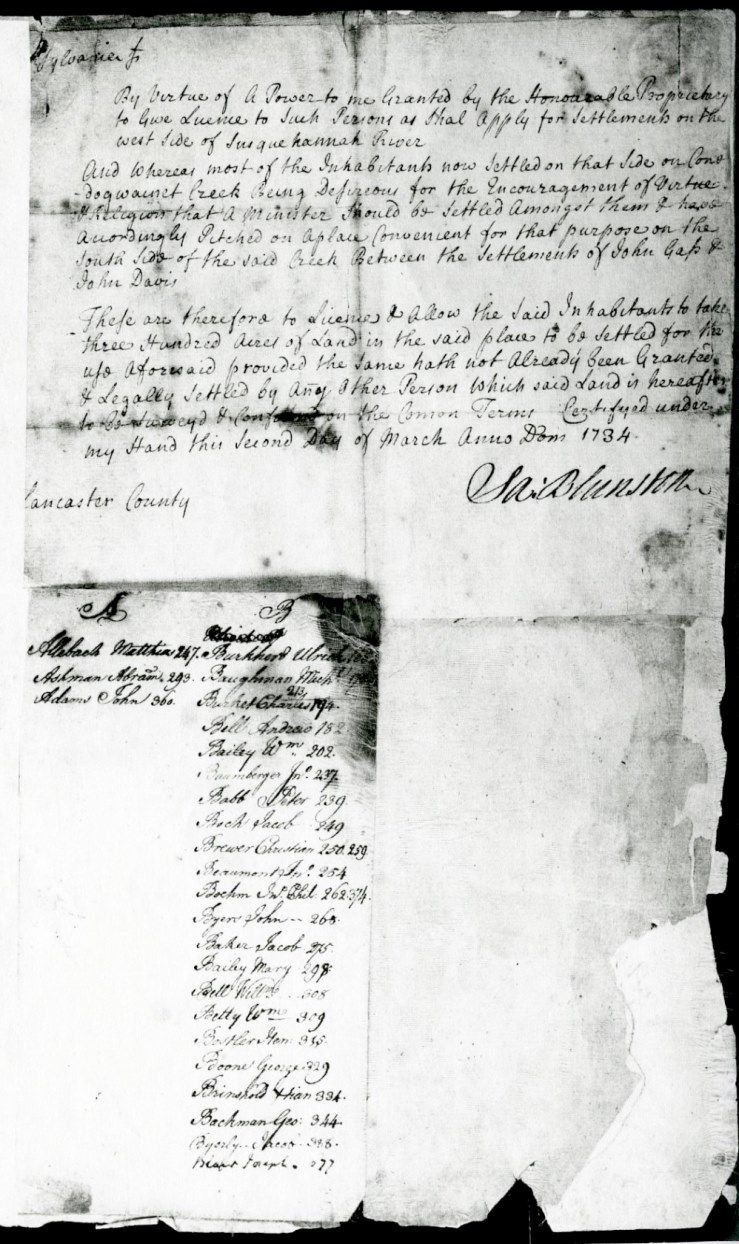 sylvania ss
By Virtue of A Power to me Granted by the Honourable Proprietary
to Give Licence to Such Persons as Shal Apply for Settlements on the
west Side of Susquehannah River
And whereas most of the Inhabitants now Settled on that Side on Cone
dogwainet Creek Being Desireous for the Encouragement of Virtue
& Religion that A Minister Should be Settled Amongst them & have
Accordingly Pitched on A place Convenient for that purpose on the
South Side of the said Creek Between the Settlements of John Gass &
John Davis
These are therefore to Licence & Allow the Said Inhabitants to take
three Hundred Acres of Land in the said place to be Settled for the
use Aforesaid provided the Same hath not Already been Granted
& Legally Settled by Any Other Person Which said Land is hereafter
to be Surveyd & on the Comon Terms Certifyed under
my Hand this Second Day of March Anno Dom 1734
Sa: Blunston
Lancaster County
A
Allebach Matthia 247.
Ashman Abram 293.
Adams John 360.
B
Burkherd Ulrich
Baughman Mich
213
Burket Charles 194
Bell Andrew 182
Bailey Wm 202.
Baumberger Jno. 237.
Babb Peter 239
Bach Jacob 249
Brewer Christian 250.259
Beaumont Jno. 254
Boehm Jno. Phil. 262.374.
Byers John -- 268.
Baker Jacob 275
Bailey Mary 298
Bell Willm 308
Betty Wm 309
Bostler Hen: 315.
Boone George 329
334.
Bachman Geo: 344
Byerly Jacob 338.
Joseph.